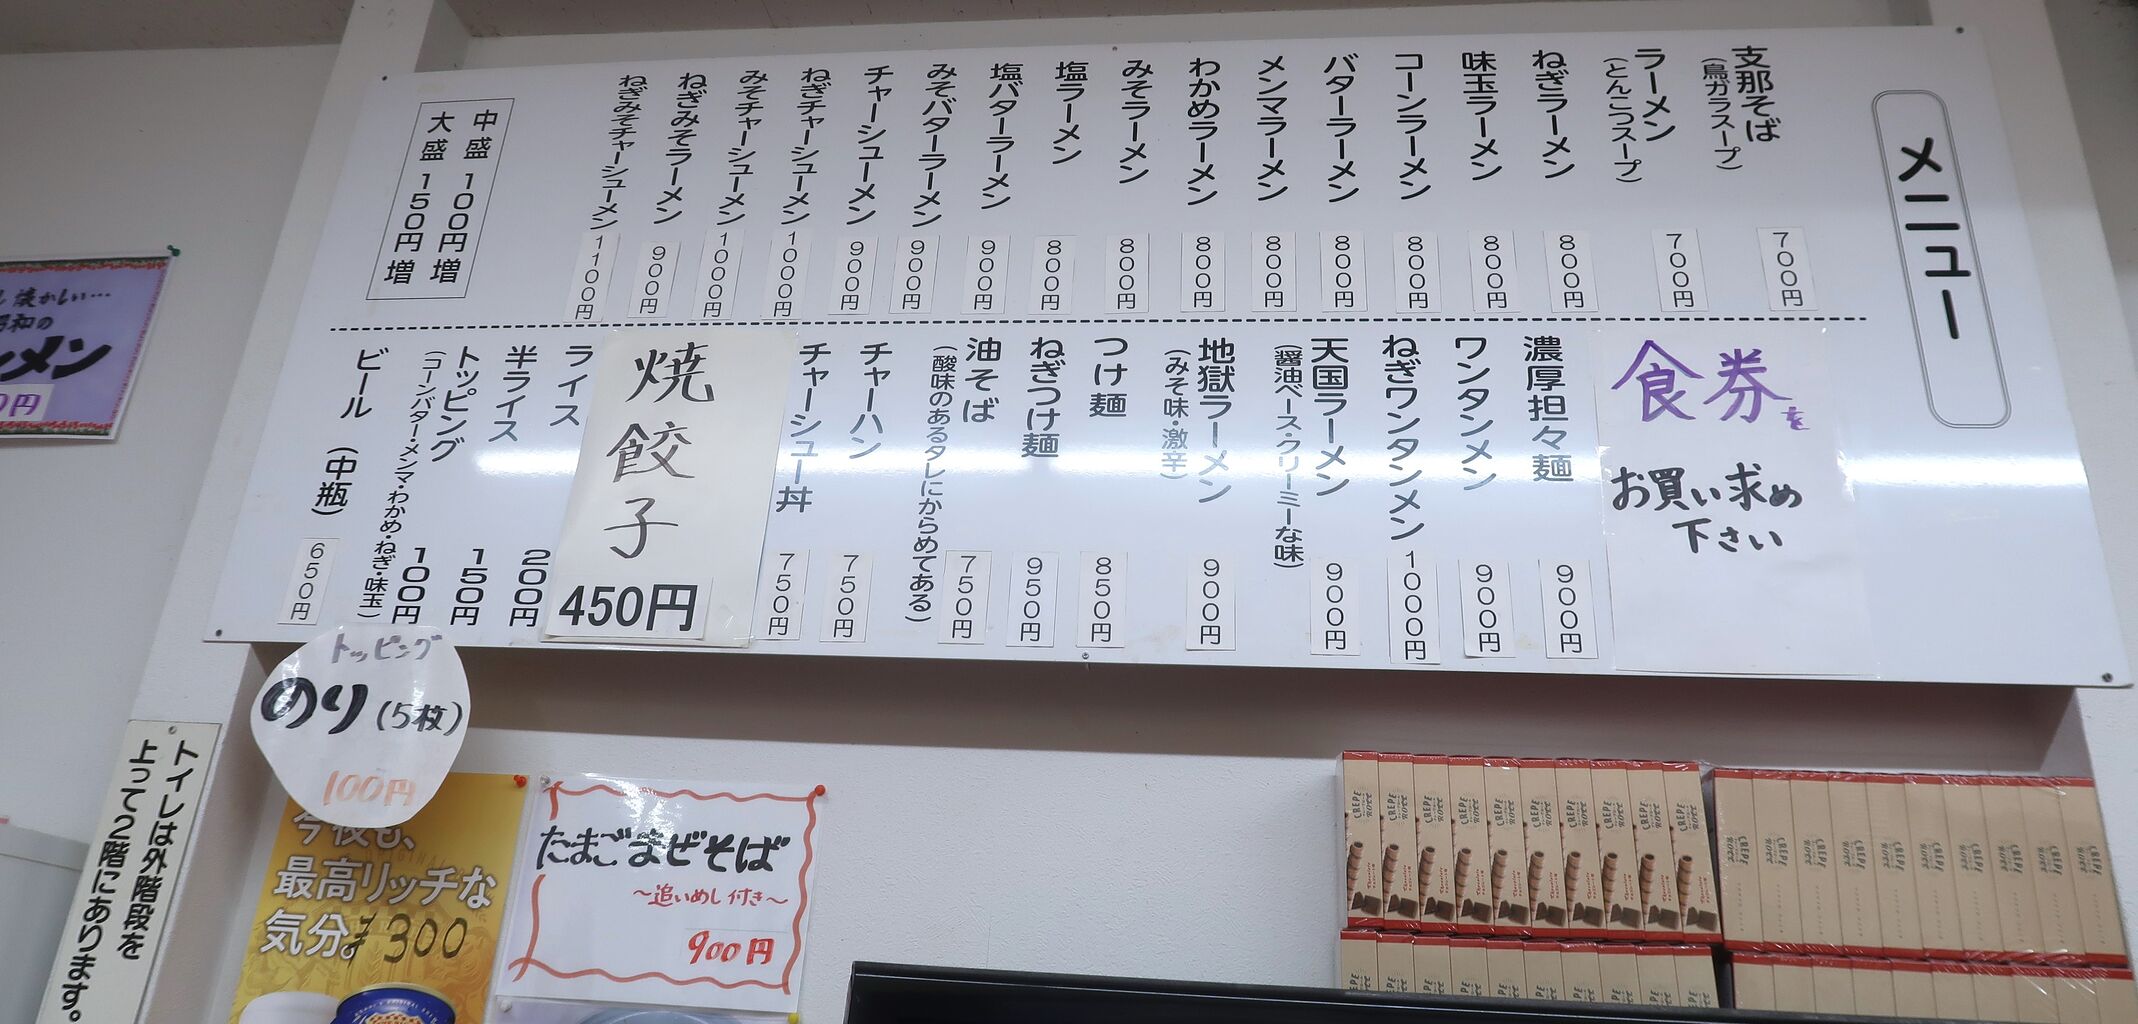 メニュー
支那そば
(鳥ガラスープ)
700円
ラーメン
(とんこつスープ)
700円
ねぎラーメン
800円
味玉ラーメン
800円
コーンラーメン
800円
バターラーメン
800円
メンマラーメン
800円
わかめラーメン
800円
みそラーメン
800円
塩ラーメン
800円
塩バターラーメン
900円
みそバターラーメン
900円
チャーシューメン
900円
ねぎチャーシューメン
1000円
みそチャーシューメン
1000円
ねぎみそラーメン
900円
ねぎみそチャーシューメン
1100円
中盛 100円増
大盛 150円増
食券を
お買い求め
下さい
濃厚担々麺
900円
ワンタンメン
900円
ねぎワンタンメン
1000円
天国ラーメン
(醤油ベース・クリーミーな味)
900円
地獄ラーメン
(みそ味・激辛)
900円
つけ麺
850円
ねぎつけ麺
950円
油そば
(酸味のあるタレにからめてある)
750円
チャーハン
750円
チャーシュー丼
750円
焼餃子
450円
ライス
200円
半ライス
150円
トッピング
(コーンバター・メンマ・わかめ・ねぎ・味玉)
100円
ビール(中瓶)
650円
トッピング
のり(5枚)
100円
懐かしい…
昭和の
メン
0円
トイレは外階段を
上って2階にあります。
今夜も、
最高リッチな
気分。¥300
たまごまぜそば
〜追いめし付き〜
900円
CREPE